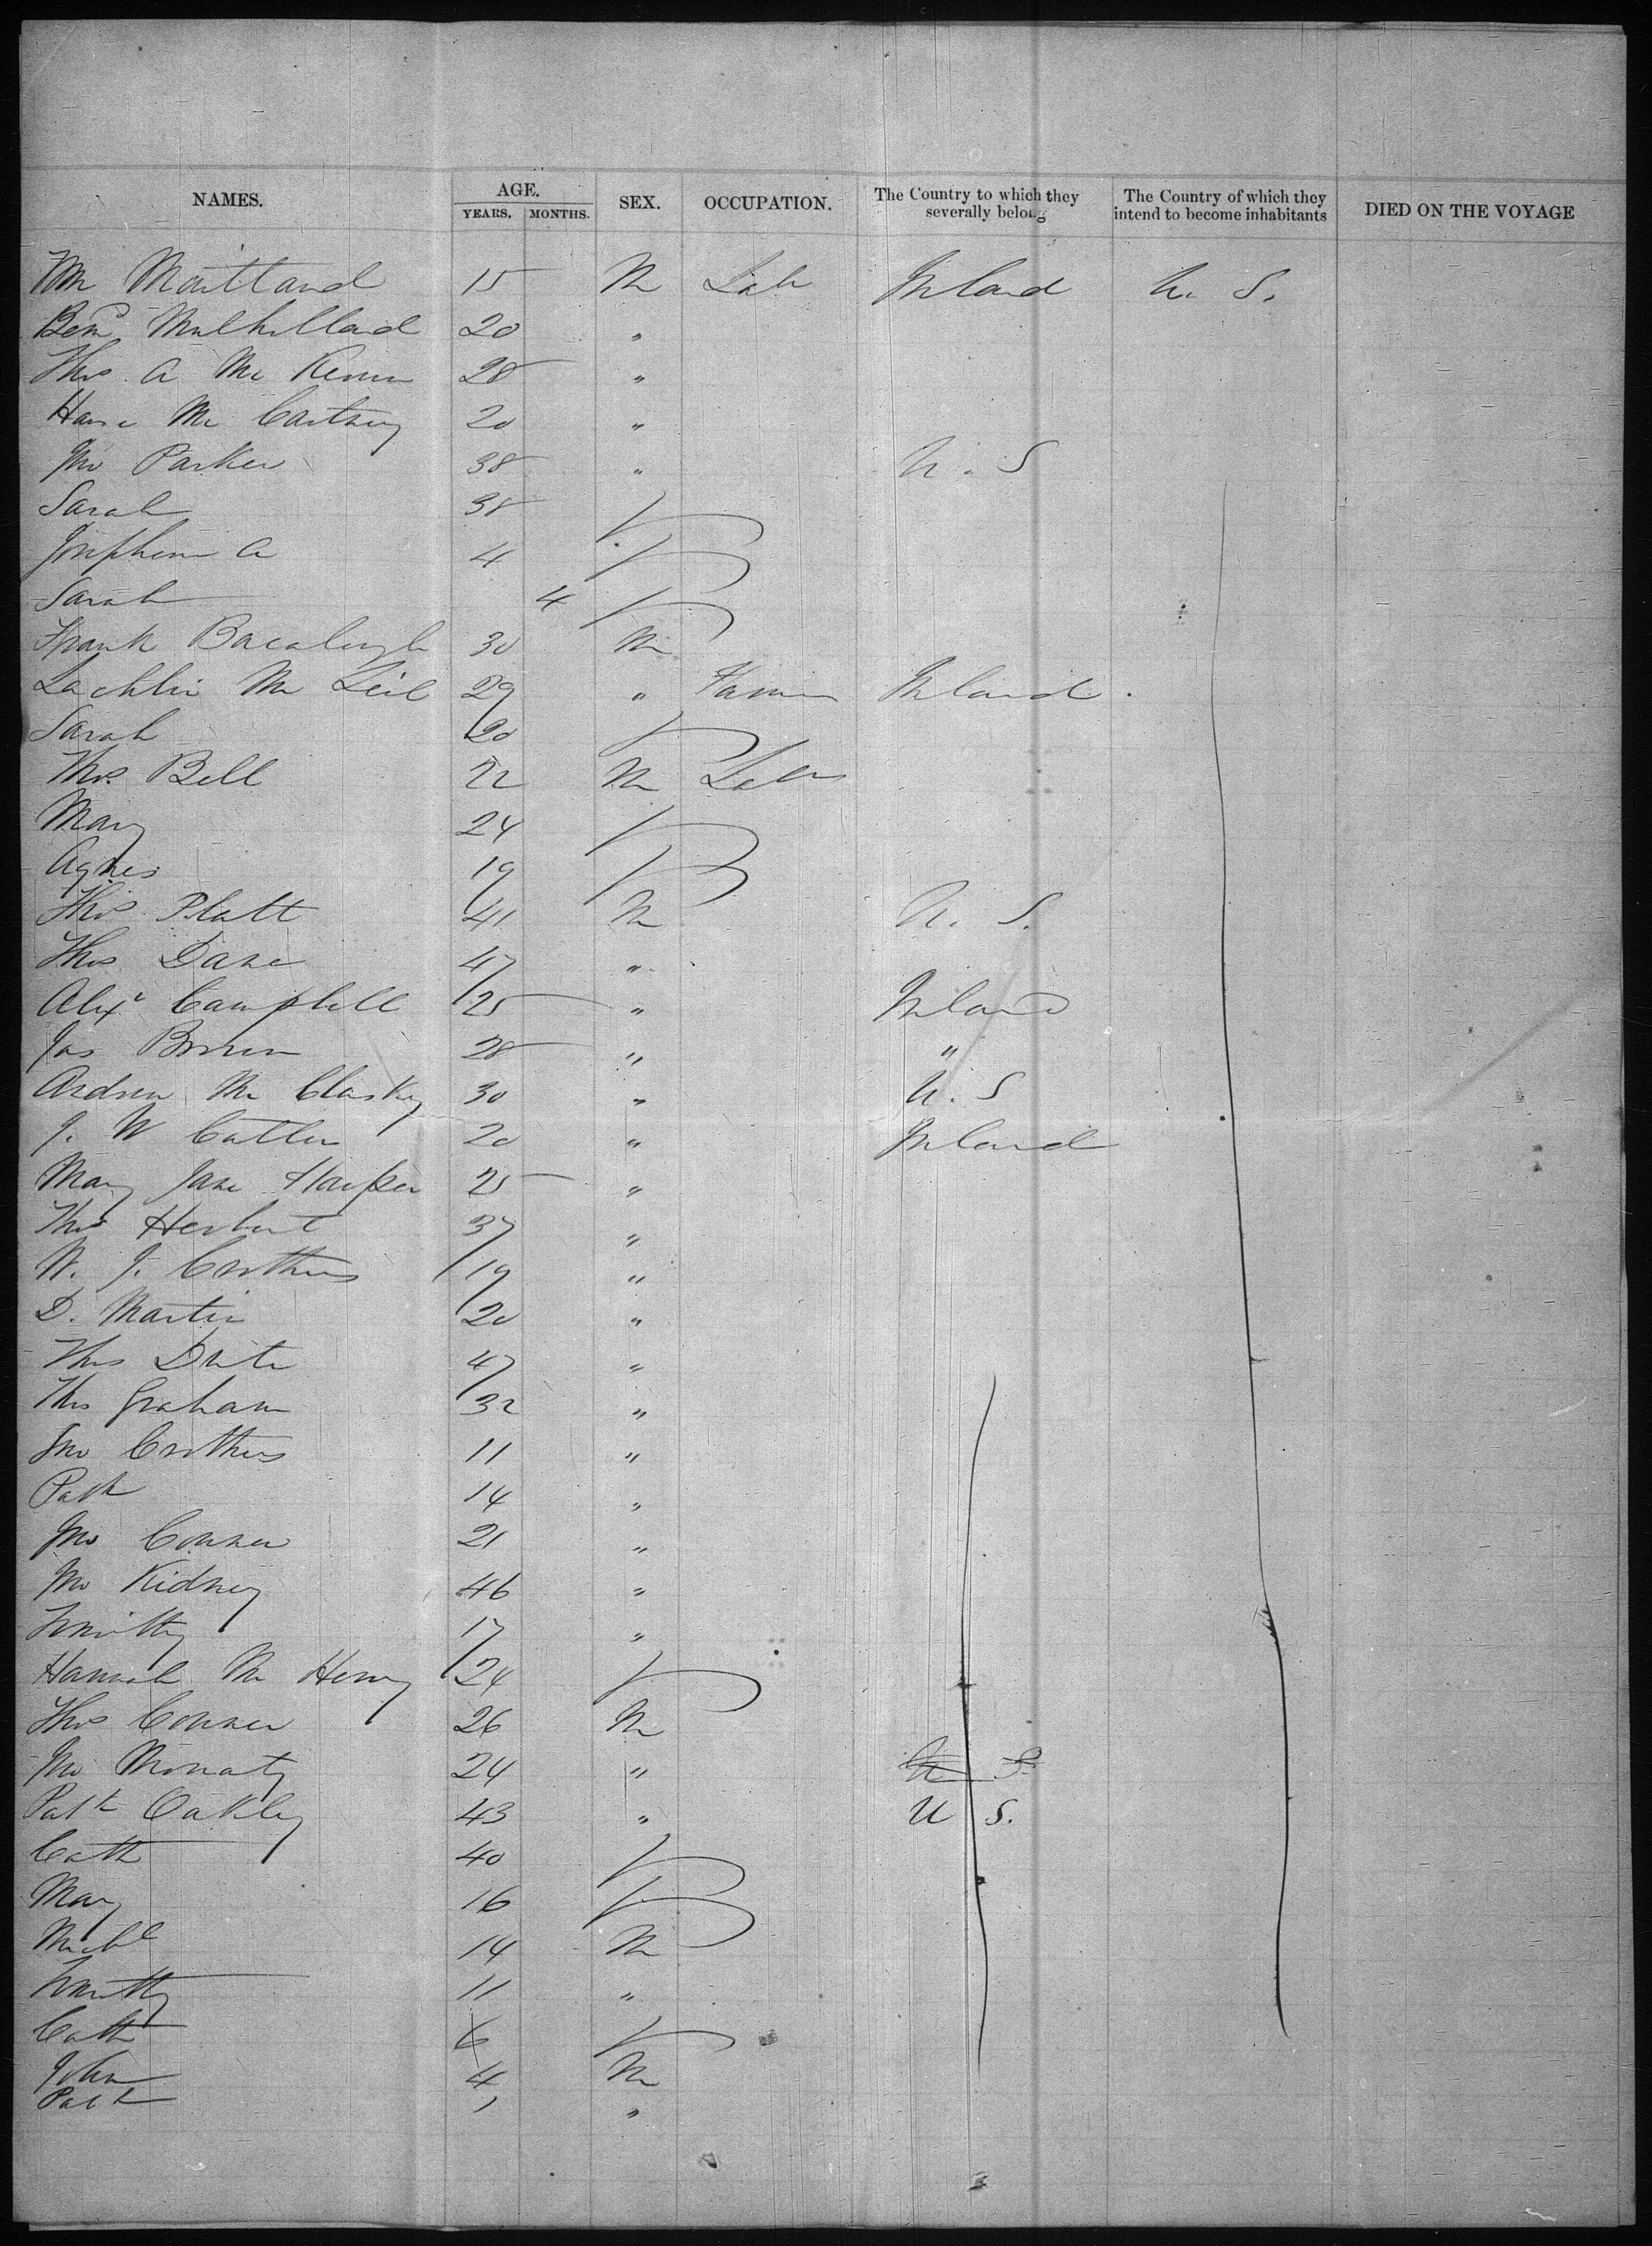 NAMES. AGE. YEARS. MONTHS. SEX. OCCUPATION. The Country to which they severally belong The Country of which they intend to become inhabitants DIED ON THE VOYAGE
Wm Maitland 15 M Lab Ireland U. S.
Benj Mulholland 20 "
Thos A Mc 28 "
Mc Cartney 20 "
Jno Parker 38 " U. S
Sarah 38 F
Josephine A 4 F
Sarah 4 F
Frank 30 M
Lachlin Mc 29 " Farmer Ireland
Sarah 20 F
Thos Bell 22 M Labr
Mary 24 F
Agnes 19 F
Thos Platt 41 M U. S.
Thos Dane 47 "
Alexr Campbell 25 " Ireland
Jas Brown 28 " "
Andrew Mc Closkey 30 " U. S
J. W 20 " Ireland
Mary Jane Harper 25 "
Thos Herbert 37 "
W. J. Crothers 19 "
D. Martin 20 "
Thos 47 "
Thos Graham 32 "
Jno Crothers 11 "
Patk 14 "
Jno Conner 21 "
Jno Kidney 46 "
Timothy 17 "
Hannah Mc Henry 24 F
Thos Conner 26 M
Jno Moriaty 24 " U S
Patk Oakley 43 " U S.
Cath 40 F
Mary 16 F
Michl 14 M
Timothy 11 "
Cath 6 F
John 4 M
Patk 1 "